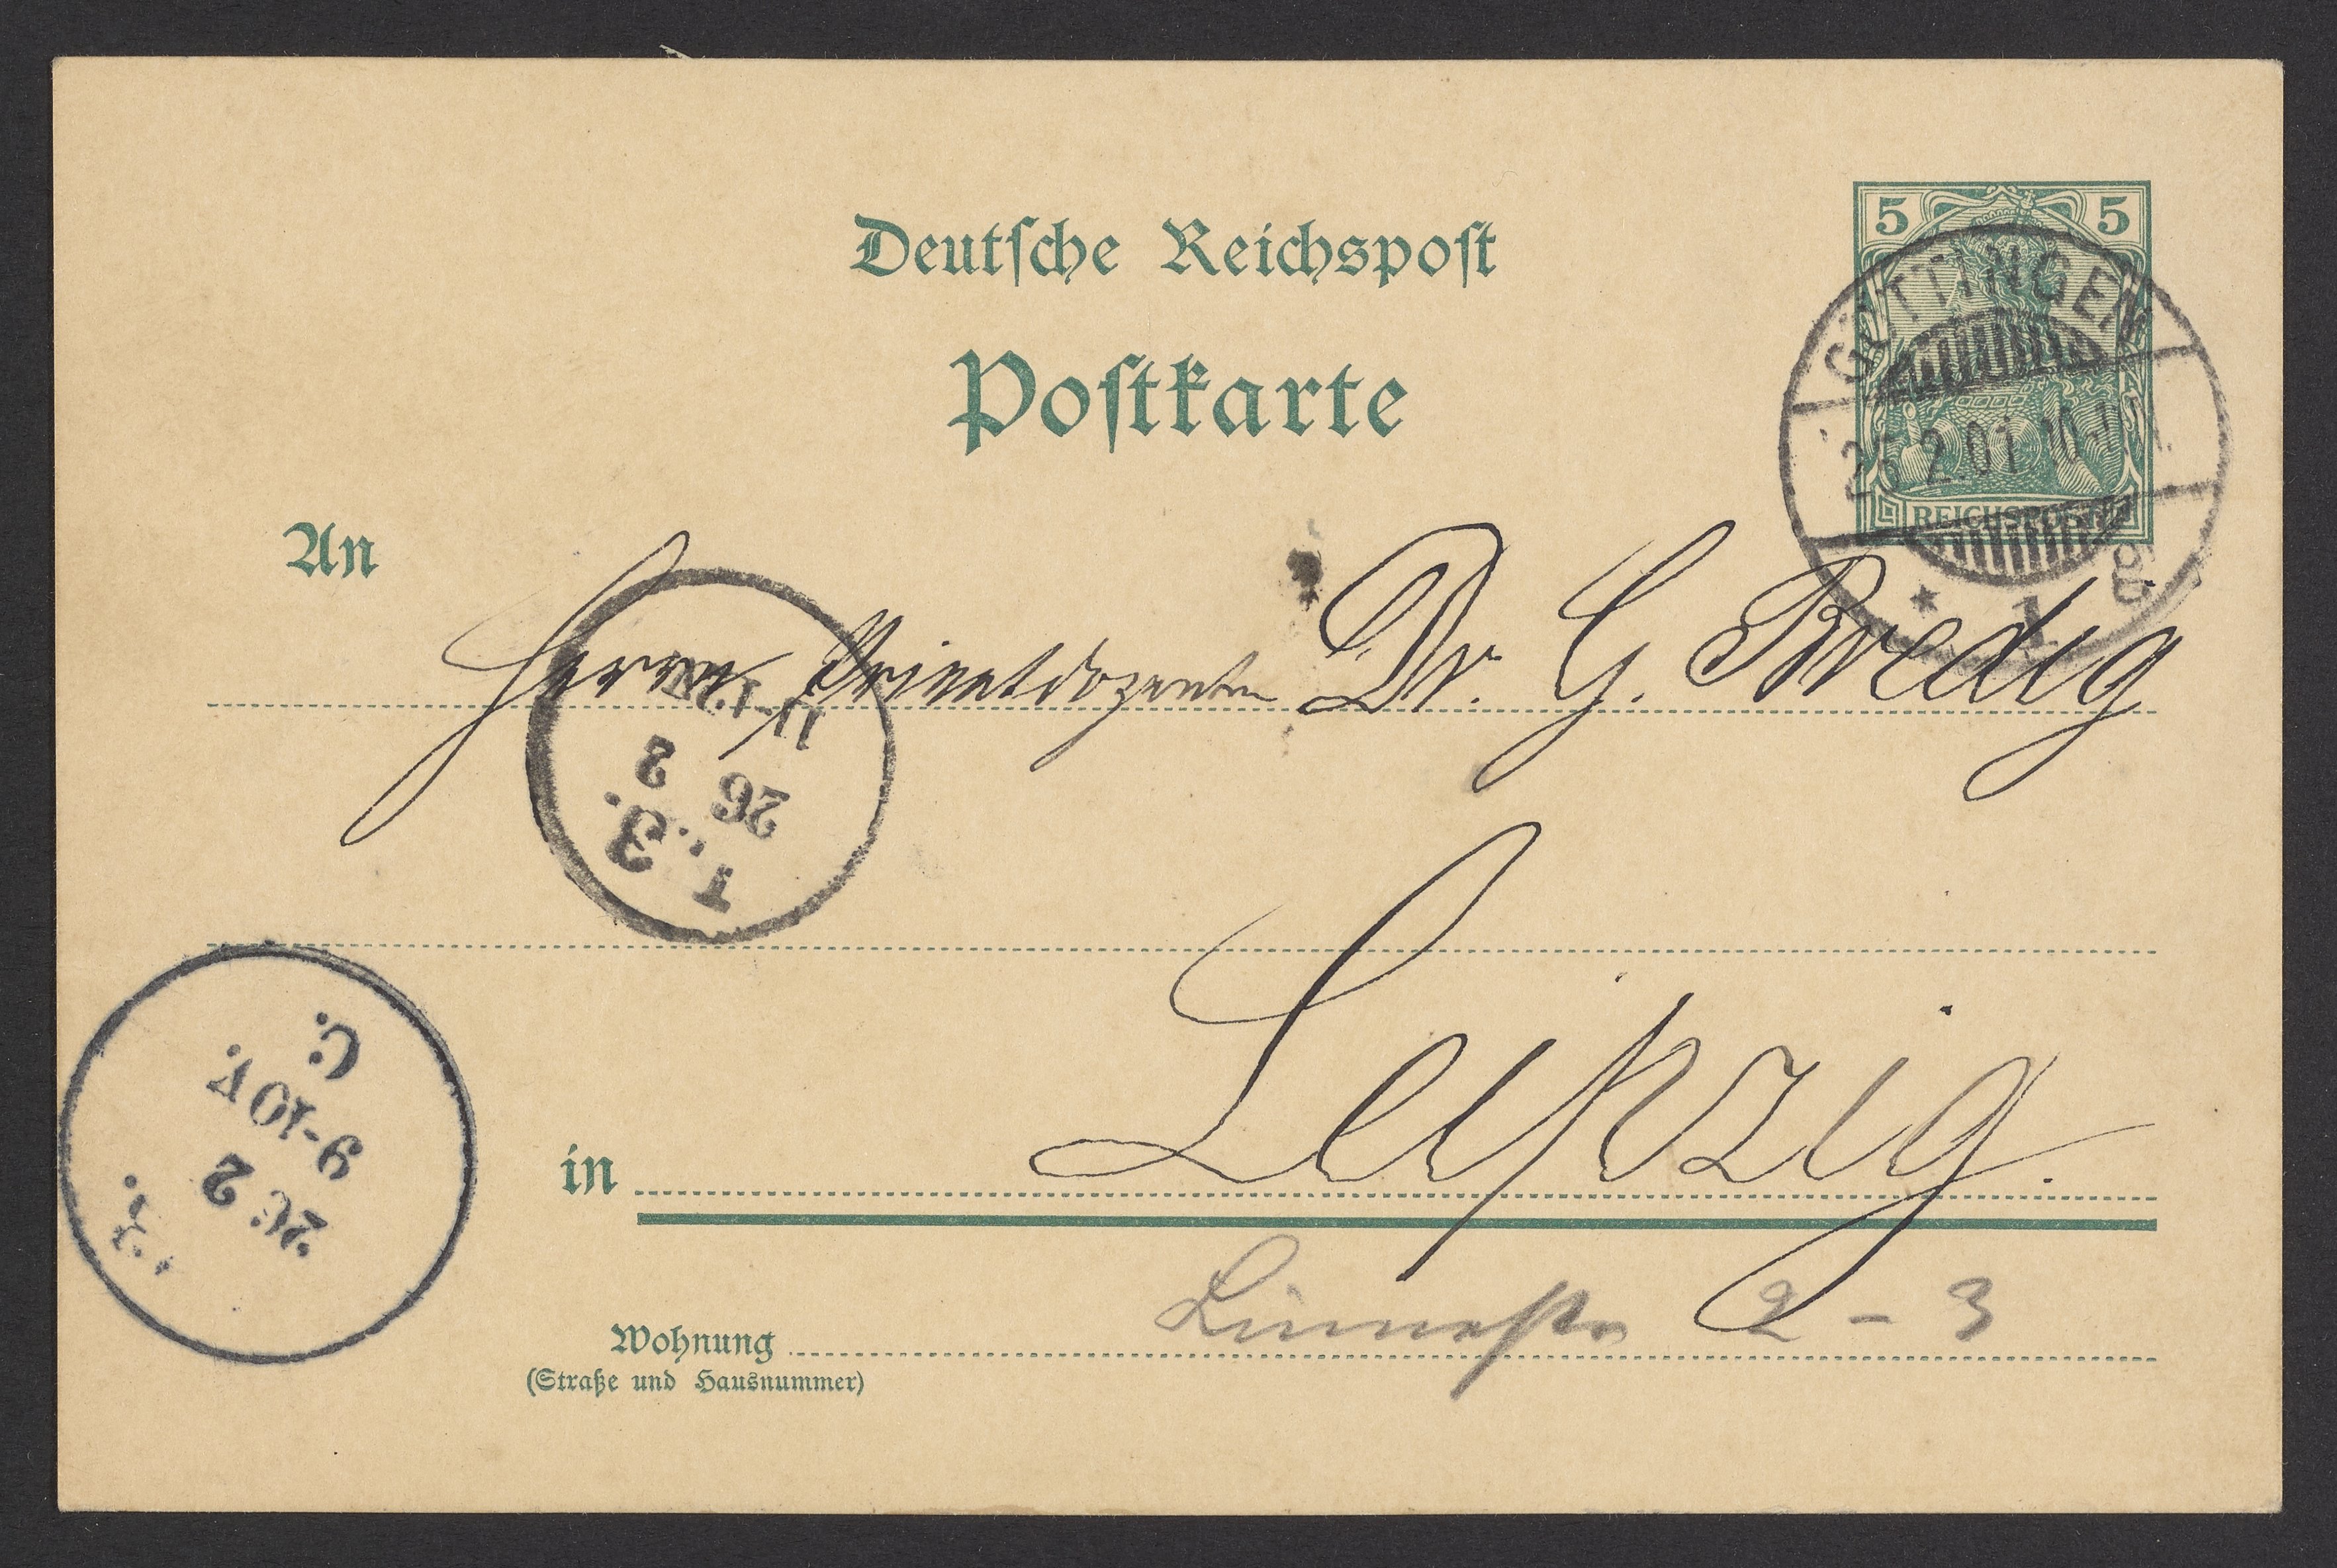 Deutsche Reichspost
Postkarte
5 5
REICHSPOST
GÖTTINGEN
25.2.01.10-11
* 1
An
Herrn Privatdozenten Dr. G. Bredig
11-12
26 2
T. 3.
C.
9-10V.
26 2
in Leipzig.
Linnestr 2 - 3
Wohnung
(Straße und Hausnummer)